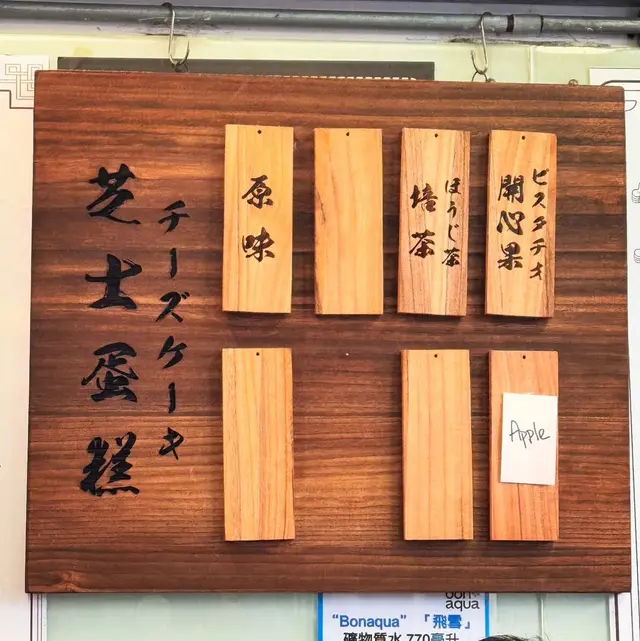 芝士蛋糕
チーズケーキ
原味
ほうじ茶
焙茶
ピスタチオ
開心果
Apple
bon
aqua
“Bonaqua” 「飛雪」
礦物質水 770毫升